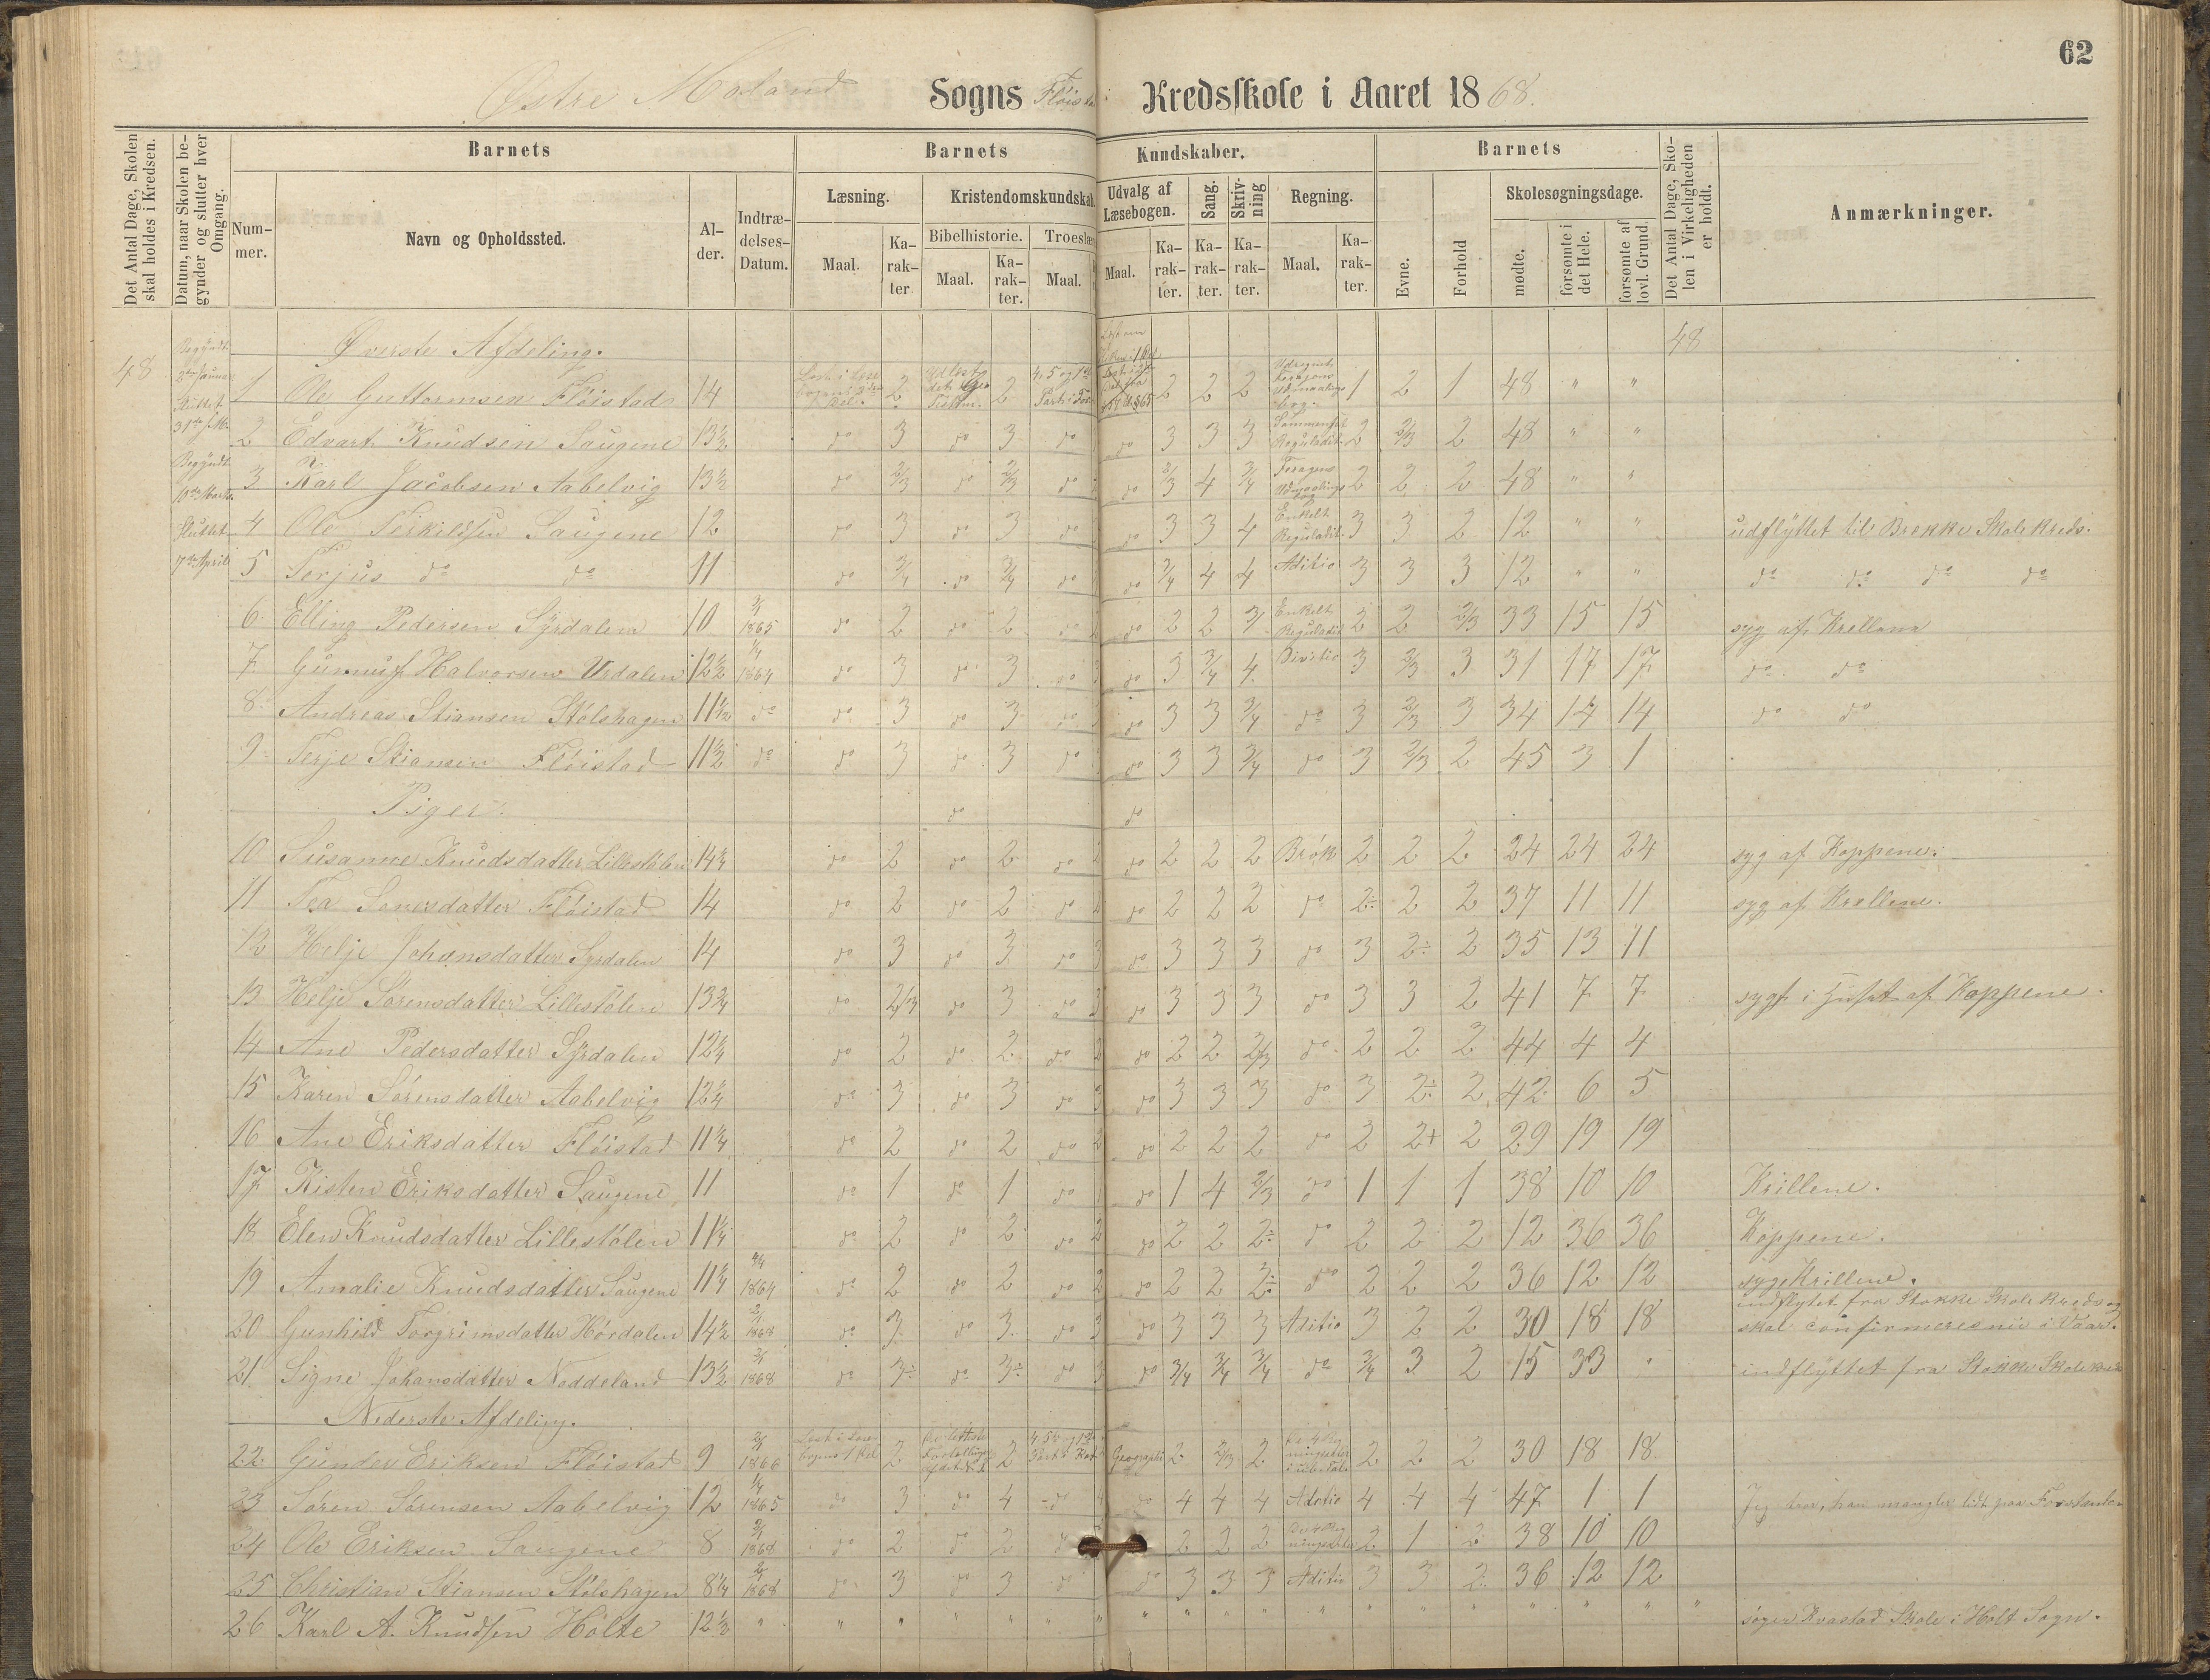 62
Østre Moland Sogns Kredsskole i Aaret 1868.
Det Antal Dage, Skolen skal holdes i Kredsen.
Datum, naar Skolen begynder og slutter hver Omgang.
Barnets
Nummer.
Navn og Opholdssted.
Alder.
Indtrædelses-Datum.
Barnets Kundskaber.
Læsning.
Maal.
Karakter.
Kristendomskundskab
Bibelhistorie.
Maal.
Karakter.
Troeslære
Maal.
Udvalg af Læsebogen.
Maal.
Karakter.
Sang.
Karakter.
Skrivning
Karakter.
Regning.
Maal.
Karakter.
Barnets
Evne.
Forhold
Skolesøgningsdage.
mødte.
forsømte i det Hele.
forsømte af lovl. Grund.
Det Antal Dage, Skolen i Virkeligheden er holdt.
Anmærkninger.
48
Begyndt
Sluttet
Begyndt
10de Marts
Sluttet
7de April
Øverste Afdeling. 48
1 Ole Guttormsen Flöistad 14 2 2 2 2 2 1 2 1 48 " "
2 Edvart Knudsen Saugene 13½ do 3 do 3 do do 3 3 3 2 2/3 2 48 " "
3 Karl Jacobsen Aabelvig 13½ do 2/3 do 2/3 do do 2/3 4 3/4 2 2 2 48 " "
4 Ole Terkildsen Saugene 12 do 3 do 3 do do 3 3 4 Enkelt Reguladet. 3 3 2 12 " " udflyttet til Brekke Skolekreds.
5 Terjus do do 11 do 3/4 do 3/4 do do 3/4 4 4 Aditio 3 3 3 12 " " do do do do
6 Elling Pedersen Syrdalen 10 1865 do 2 do 2 do do 2 2 3/ Enkelt Reguladet 2 2 2/3 33 15 15 syg af Krellene
7 Gunnuf Halvorsen Urdalen 12½ 1864 do 3 do 3 do do 3 3/4 4 Divitio 3 2/3 3 31 17 17 do do
8 Andreas Stiansen Stölshagen 11½ do do 3 do 3 do do 3 3 3/4 do 3 2/3 3 34 14 14 do do
9 Terje Stiansen Flöistad 11½ do do 3 do 3 do do 3 3 3/4 do 3 2/3 2 45 3 1
Piger. do do
10 Susanne Knudsdatter Lillestölen 14¼ do 2 do 2 do 2 do 2 2 2 Brøk 2 2 2 24 24 24 syg af Koppene.
11 Tea Sörensdatter Flöistad 14 do 2 do 2 do 2 do 2 2 2 do 2÷ 2 2 37 11 11 syg af Krellene.
12 Helje Johansdatter Syrdalen 14 do 3 do 3 do 3 do 3 3 3 do 3 2÷ 2 35 13 11
13 Helje Sörensdatter Lillestölen 13¾ do 2/3 do 3 do 3 do 3 3 3 do 3 3 2 41 7 7 sygt i Huset af Koppene.
14 Ane Pedersdatter Syrdalen 12¼ do 2 do 2 do 2 do 2 2 2/3 do 2 2 2 44 4 4
15 Karen Sörensdatter Aabelvig 12¼ do 3 do 3 do 3 do 3 3 3 do 3 2÷ 2 42 6 5
16 Ane Eriksdatter Flöistad 11¼ do 2 do 2 do 2 do 2 2 2 do 2 2+ 2 29 19 19
17 Kisten Eriksdatter Saugene 11 do 1 do 1 do 1 do 1 4 2/3 do 1 1 1 38 10 10 Krillene.
18 Elen Knudsdatter Lillestölen 11¼ do 2 do 2 do 2 do 2 2 2÷ do 2 2 2 12 36 36 Koppene.
19 Amalie Knudsdatter Saugene 11¼ 1864 do 2 do 2 do 2 do 2 2 2÷ do 2 2 2 36 12 12 syge Krillene.
20 Gunhild Torgrimsdatter Hördalen 14½ 1868 do 3 do 3 do 3 do 3 3 3 Aditio 3 2 2 30 18 18 indflytet fra Stokke Skolekreds og skal confirmeres nu i Vaar.
21 Signe Johansdatter Noddeland 13½ 1868 do 3÷ do 3÷ do 3 do 3/4 3/4 3/4 do 3/4 3 2 15 33 indflyttet fra Stokke Skolekreds
Nederste Afdeling.
22 Gunder Eriksen Flöistad 9 1866 2 2 Geographi 2 2/3 2 2 2 2 30 18 18
23 Sören Sörensen Aabelvig 12 1865 do 3 do 4 do 4 do 4 4 4 Aditio 4 4 4 47 1 1 Jeg tror, han mangler lidt paa Forstanden
24 Ole Eriksen Saugene 8 1868 do 2 do 2 do 2 2 2 2 1 2 38 10 10
25 Christian Stiansen Stölshagen 8¼ 1868 do 3 do 3 do do 3 3 3 Aditio 3 3 2 36 12 12
26 Karl A. Knudsen Holte 12½ " " " " " " " " " " " " " " " " " " " " søger Kvastad Skole i Holt Sogn.